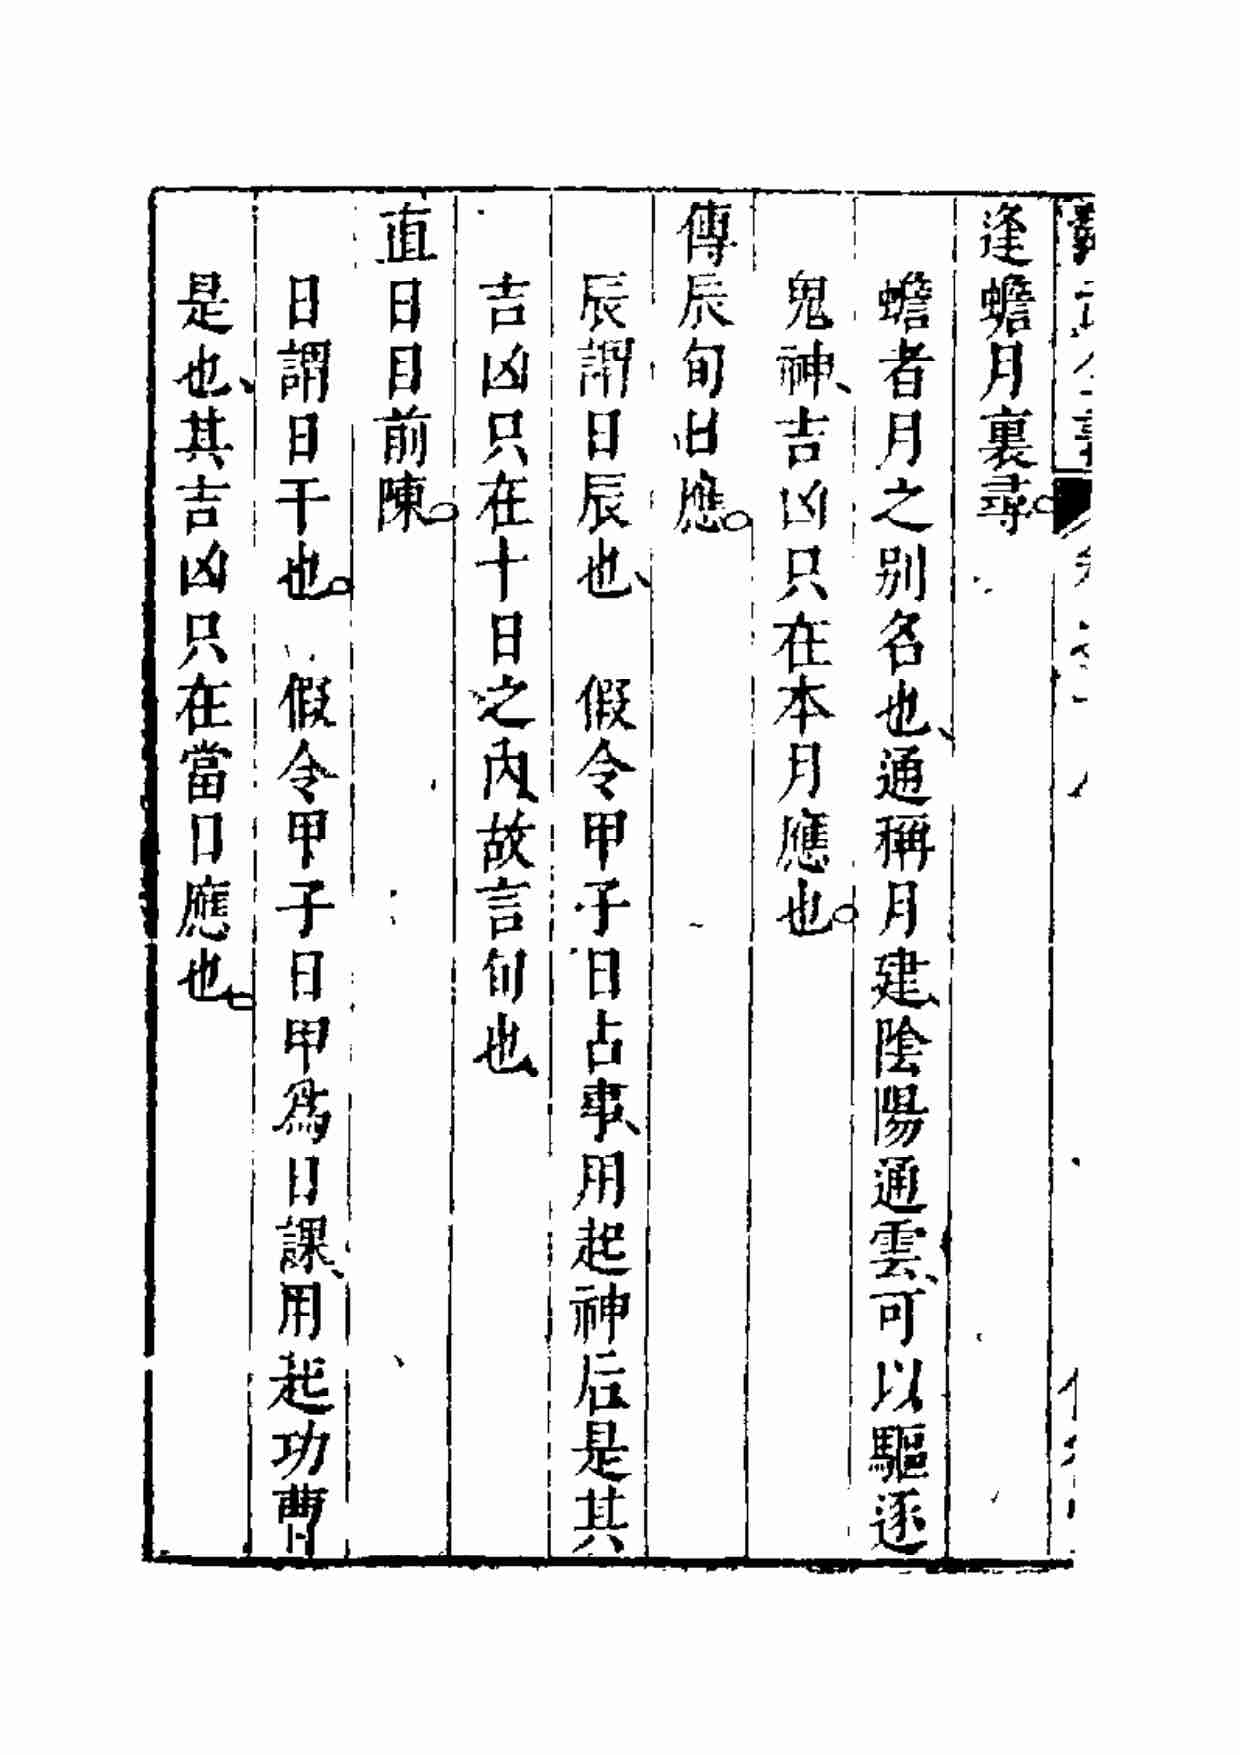 逢蟾月裏尋。
蟾者月之別名也、通稱月建、陰陽通雲、可以驅逐
鬼神、吉凶只在本月應也。
傳辰旬日應。
辰謂日辰也、 假令甲子日占事、用起神后是其
吉凶只在十日之內、故言旬也、
直日目前陳。
日謂日干也。 假令甲子日甲為日課、用起功曹
是也、其吉凶只在當日應也。